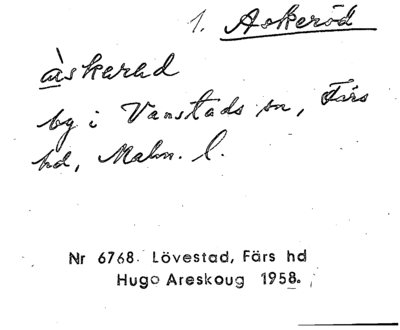 1. Askeröd
àskerad
by i Vanstads sn, Färs
hd, Malm. l.
Nr 6768. Lövestad, Färs hd
Hugo Areskoug 1958.